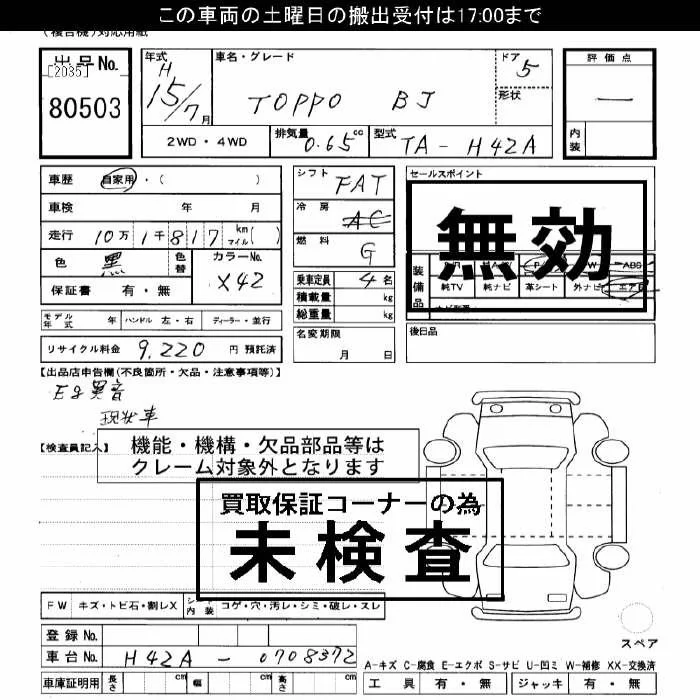 この車両の土曜日の搬出受付は17:00まで
(複合機)対応用紙
出品No.
[2035]
80503
年式
H
15/7月
車名・グレード
TOPPO BJ
ドア
5
形状
評価点
―
内装
2WD・4WD
排気量
0.65cc
型式
TA-H42A
車歴 自家用・( )
車検 年 月
走行 10万1千817km マイル( )
色 黒 色替
カラーNo.
X42
保証書 有・無
シフト
FAT
冷房
AC
燃料
G
乗車定員 4名
積載量 kg
総重量 kg
セールスポイント
無効
装備品
ABS
純TV 純ナビ 革シート 外ナビ エアB
モデル年式 年 ハンドル 左・右 ディーラー・並行
名変期限
月 日
後日品
リサイクル料金 9,220 円 預託済
【出品店申告欄(不良箇所・欠品・注意事項等)】
Eg異音
現状車
【検査員記入】
機能・機構・欠品部品等は
クレーム対象外となります
買取保証コーナーの為
未検査
FW キズ・トビ石・割レX シート内装 コゲ・穴・汚レ・シミ・破レ・スレ
スペア
登録No.
車台No. H42A-0708372
A-キズ C-腐食 E-エクボ S-サビ U-凹ミ W-補修 XX-交換済
車庫証明用 長さ cm 幅 cm 高さ cm
工具 有・無 ジャッキ 有・無